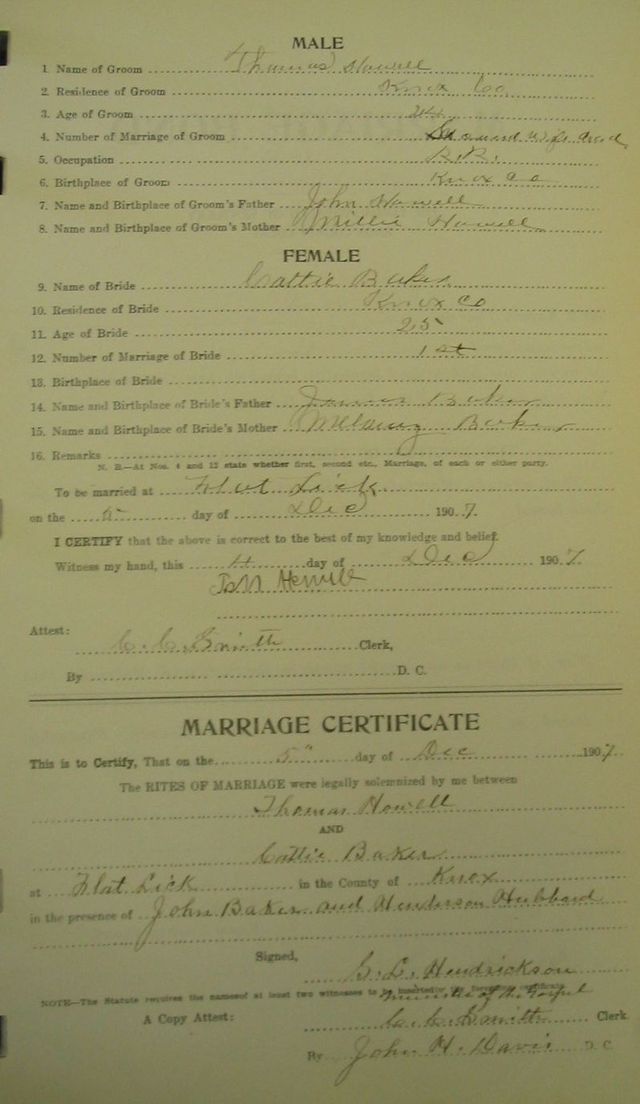 MALE
1. Name of Groom Thomas Howell
2. Residence of Groom Knox Co
3. Age of Groom
4. Number of Marriage of Groom wife dead
5. Occupation
6. Birthplace of Groom Knox Co
7. Name and Birthplace of Groom's Father John Howell
8. Name and Birthplace of Groom's Mother Millie Howell
FEMALE
9. Name of Bride Cattie Baker
10. Residence of Bride Knox Co
11. Age of Bride 25
12. Number of Marriage of Bride 1st
13. Birthplace of Bride
14. Name and Birthplace of Bride's Father James Baker
15. Name and Birthplace of Bride's Mother Baker
16. Remarks
N. B.—At Nos. 4 and 12 state whether first, second etc., Marriage, of each or either party.
To be married at Flat Lick
on the 5 day of Dec 1907.
I CERTIFY that the above is correct to the best of my knowledge and belief.
Witness my hand, this 4 day of Dec 1907.
Attest:
C. C. Smith Clerk,
By D. C.
MARRIAGE CERTIFICATE
This is to Certify, That on the 5" day of Dec 1907
The RITES OF MARRIAGE were legally solemnized by me between
Thomas Howell
AND
Cattie Baker
at Flat Lick in the County of Knox
in the presence of John Baker and Henderson Hubbard
Signed,
Hendrickson
NOTE—The Statute requires the names of at least two witnesses to be inserted in the foregoing certificate
Minister of the Gospel
A Copy Attest: C. C. Smith Clerk
By John H. Davis D. C.